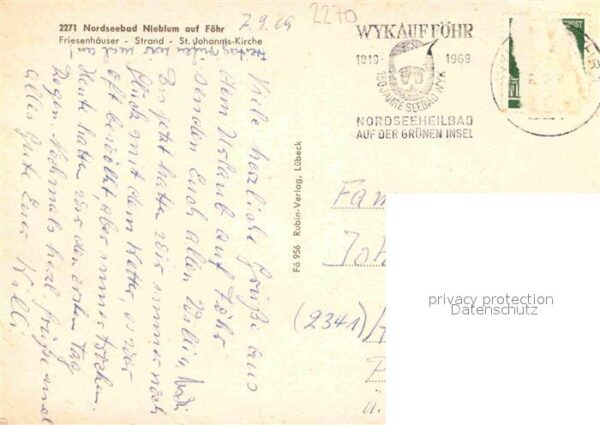 2271 Nordseebad Nieblum auf Föhr
Friesenhäuser - Strand - St. Johannis-Kirche
7.9.69
2270
WYK AUF FÖHR
1819 1969
150 JAHRE SEEBAD WYK
NORDSEEHEILBAD
AUF DER GRÜNEN INSEL
Viele herzliche Grüße aus
dem Urlaub auf Föhr
senden Euch allen Willi,
Bis jetzt hatten wir immer noch
Glück mit dem Wetter, es war
oft bewölkt, aber immer trocken.
Heute hatten wir den ersten Tag
Regen. Nochmals herzl. Grüße und
alles Gute Euer Willi
Fö 956 Rubin-Verlag, Lübeck
Fam
Joh
(2341)
privacy protection
Datenschutz